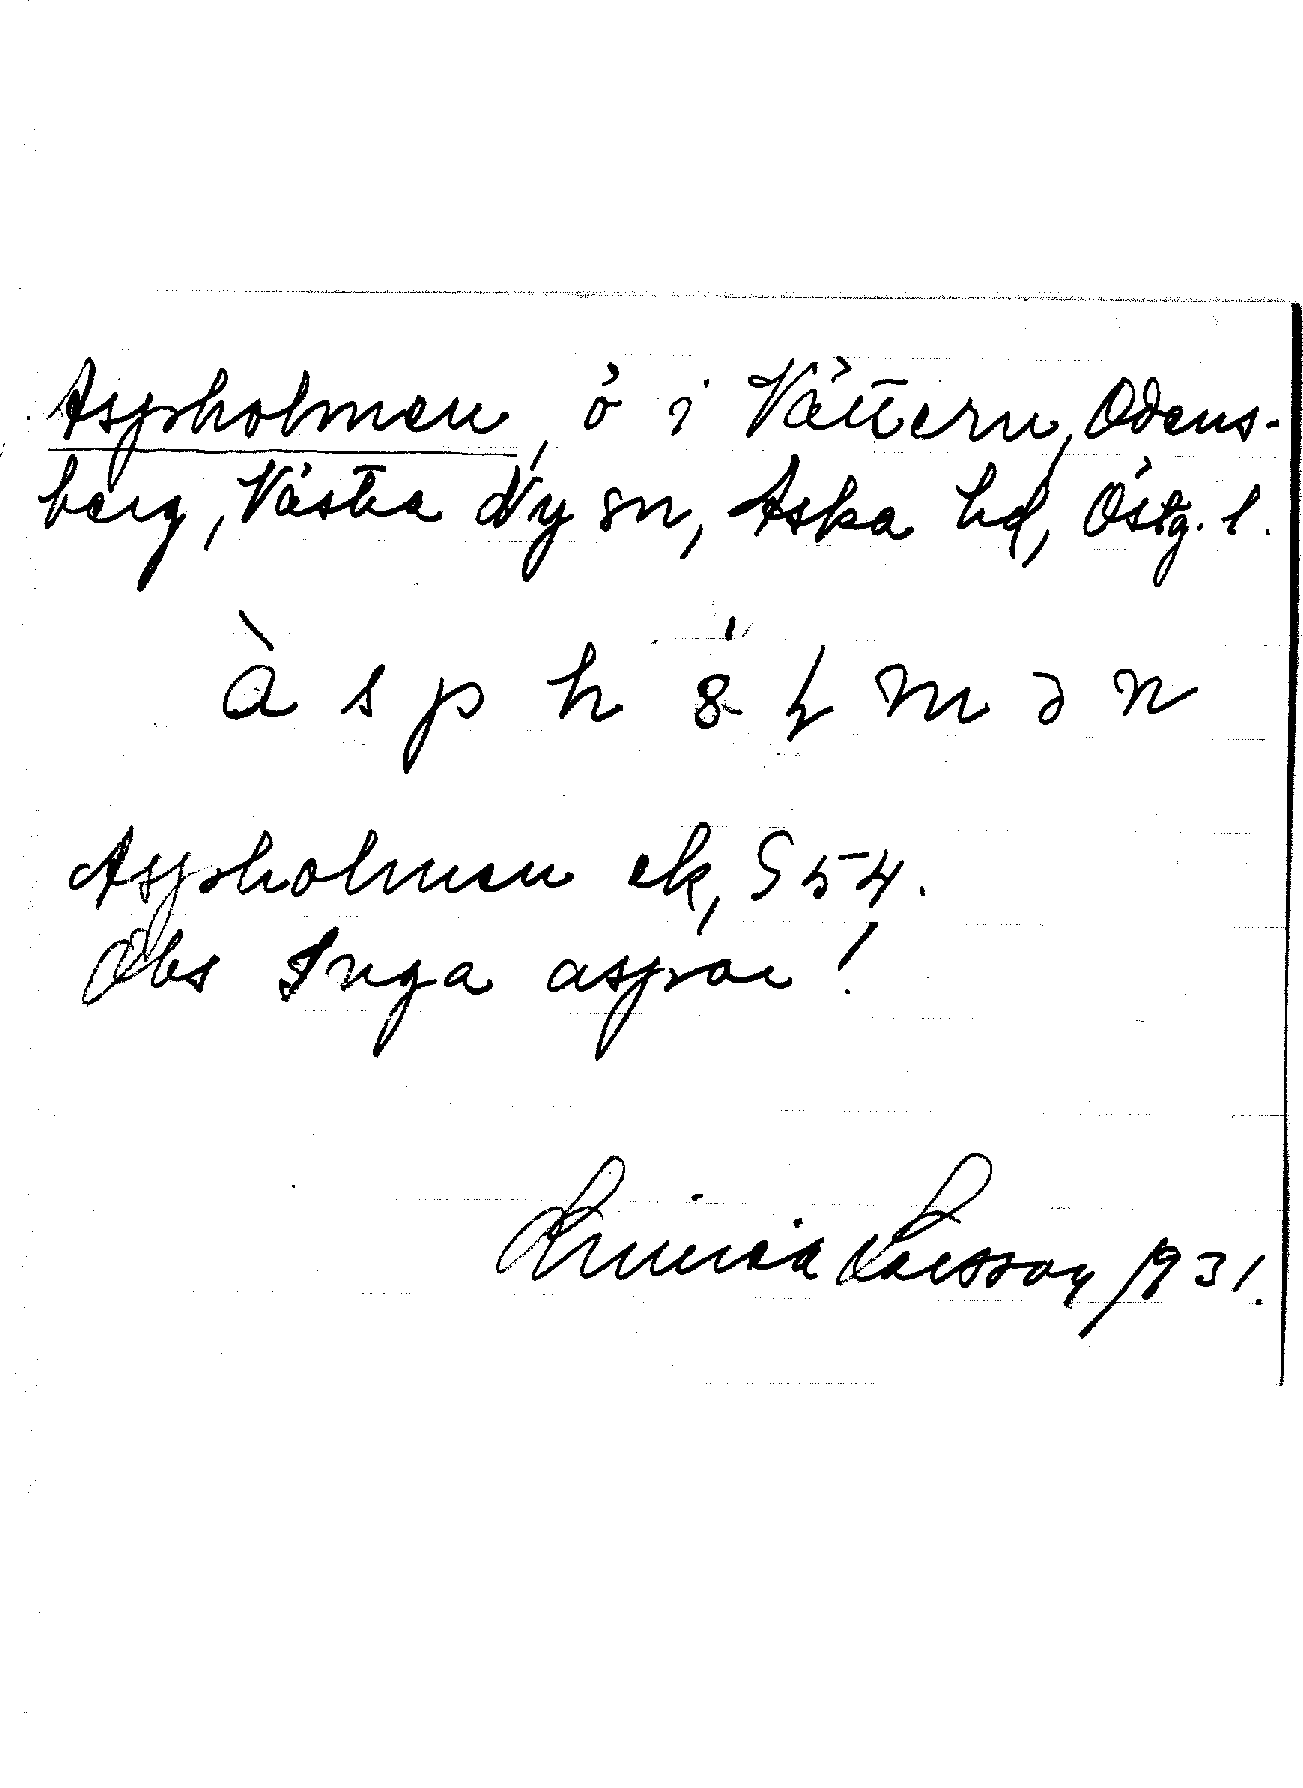 Aspholmen, ö i Vättern, Odens-
berg, Västra Ny sn, Aska hd, Östg. l.
à s p h ó̤ l m ə n
Aspholmen ek, S 54.
Obs Inga aspar!
Linnéa Larsson 1931.